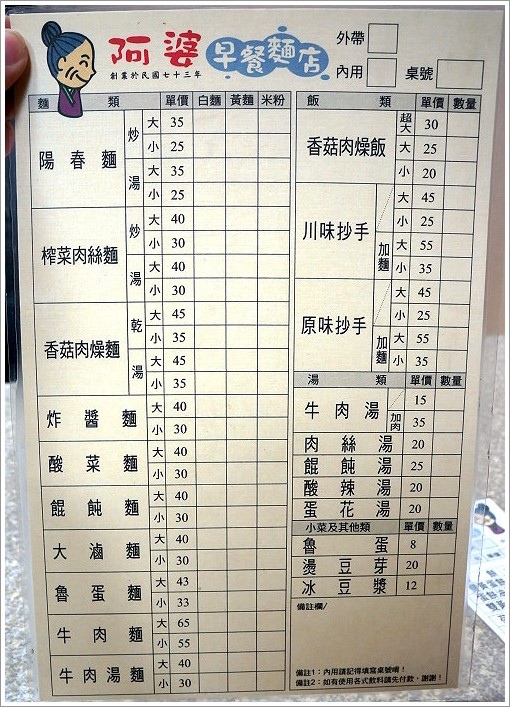 阿婆 早餐麵店
創業於民國七十三年
外帶
內用 桌號
麵類 單價 白麵 黃麵 米粉
陽春麵 炒 大 35
小 25
湯 大 35
小 25
榨菜肉絲麵 炒 大 40
小 30
湯 大 40
小 30
香菇肉燥麵 乾 大 45
小 35
湯 大 45
小 35
炸醬麵 大 40
小 30
酸菜麵 大 40
小 30
餛飩麵 大 40
小 30
大滷麵 大 40
小 30
魯蛋麵 大 43
小 33
牛肉麵 大 65
小 55
牛肉湯麵 大 40
小 30
飯類 單價 數量
香菇肉燥飯 超大 30
大 25
小 20
川味抄手 大 45
小 25
加麵 大 55
小 35
原味抄手 大 45
小 25
加麵 大 55
小 35
湯類 單價 數量
牛肉湯 15
加肉 35
肉絲湯 20
餛飩湯 25
酸辣湯 20
蛋花湯 20
小菜及其他類 單價 數量
魯蛋 8
燙豆芽 20
冰豆漿 12
備註欄/
備註1：內用請記得填寫桌號唷！
備註2：如有使用各式飲料請先付款，謝謝！